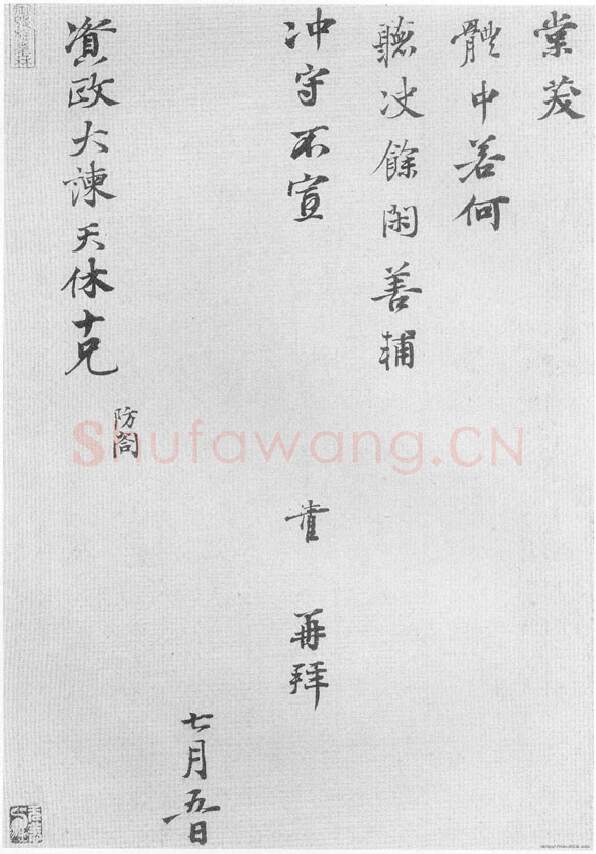 棠茇
體中若何
聽決餘閑善輔
冲守不宣
育 再拜
七月五日
防閤
資政大諫天休十兄
Shufawang.CN